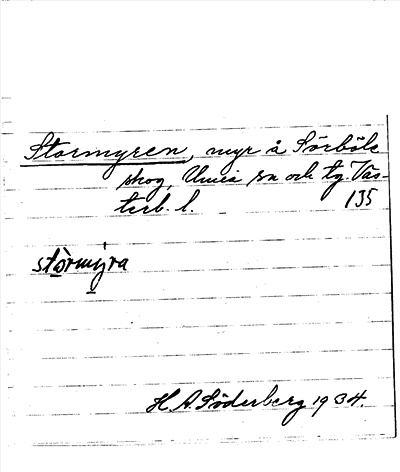 Stormyren, myr å Sörböle
skog, Umeå sn och tg. Väs-
terb. l. 135
stòrmýra
H. A. Söderberg 1934.